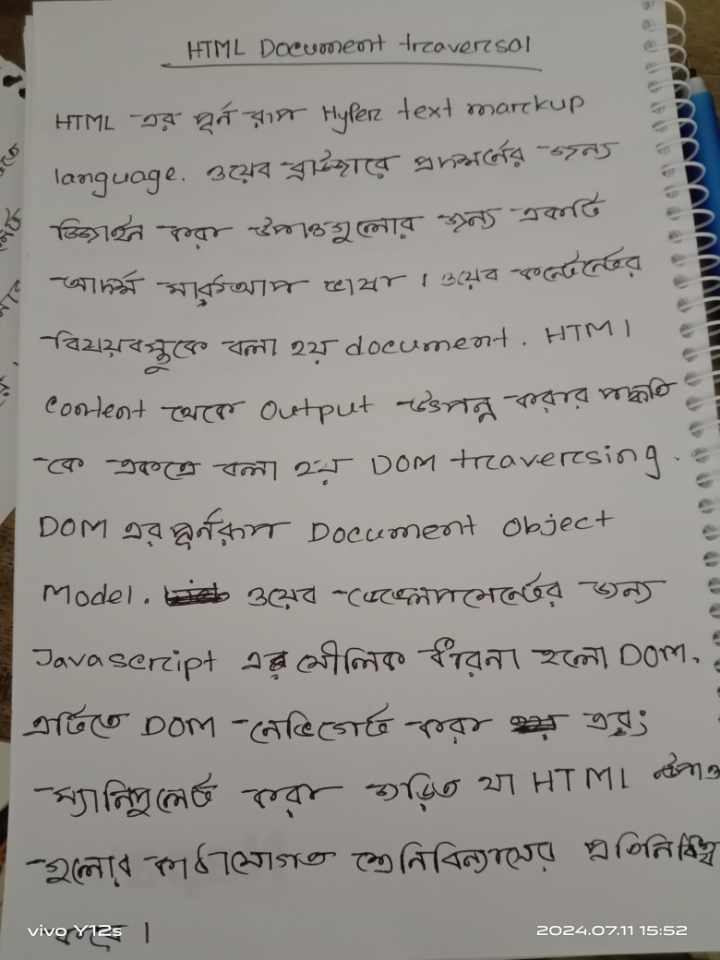 HTML Document traversal
HTML এর পূর্ন রূপ Hyper text markup
language. ওয়েব ব্রাউজারে প্রদর্শনের জন্য
ডিজাইন করা উপাত্তগুলোর জন্য একটি
আদর্শ মার্কআপ ভাষা । ওয়েব কন্টেন্টের
বিষয়বস্তুকে বলা হয় document. HTMl
Content থেকে Output উৎপন্ন করার পদ্ধতি
কে একত্রে বলা হয় DOM traversing.
DOM এর পূর্নরূপ Document Object
Model. ওয়েব ডেভেলপমেন্টের জন্য
Javascript এর মৌলিক ধারনা হলো DOM.
এটিতে DOM নেভিগেট করা এবং
ম্যানিপুলেট করা জড়িত যা HTMl উপাত্ত
গুলোর কাঠামোগত শ্রেনিবিন্যাসের প্রতিনিধিত্ব
করে ।
vivo Y12s
2024.07.11 15:52